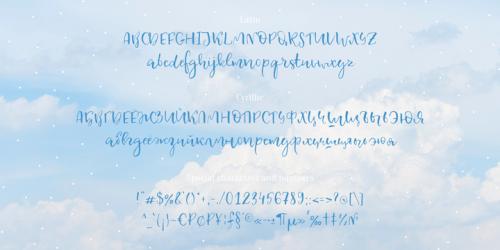 Latin
ABCDEFGHIJKLMNOPQRSTUVWXYZ
abcdefghijklmnopqrstuvwxyz
Cyrillic
АБВГДЕЁЖЗИЙКЛМНОПРСТУФХЦЧШЩЪЫЬЭЮЯ
абвгдеёжзийклмнопрстуфхцчшщъыьэюя
Special characters and numbers
!"#$%&'()*+,-./0123456789:;<=>?@[\]